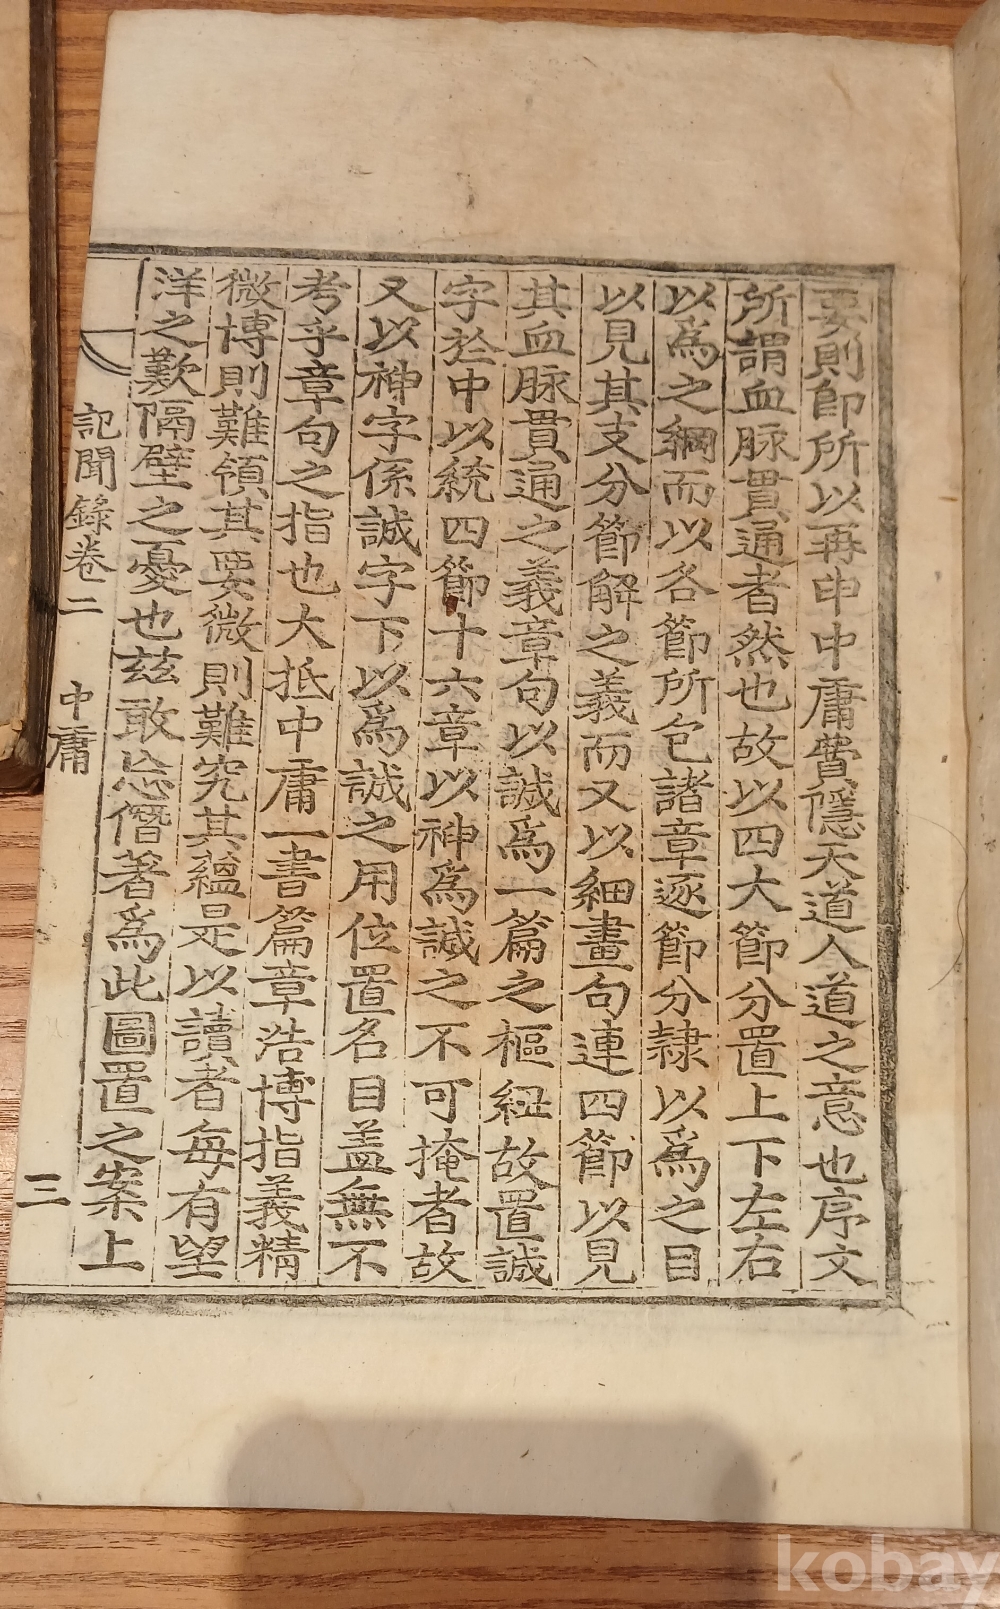 要則卽所以再申中庸費隱天道人道之意也序文
所謂血脉貫通者然也故以四大節分置上下左右
以爲之綱而以各節所包諸章逐節分隷以爲之目
以見其支分節解之義而又以細畫句連四節以見
其血脉貫通之義章句以誠爲一篇之樞紐故置誠
字於中以統四節十六章以神爲誠之不可掩者故
又以神字係誠字下以爲誠之用位置名目盖無不
考乎章句之指也大抵中庸一書篇章浩博指義精
微博則難領其要微則難究其蘊是以讀者每有望
洋之歎隔壁之憂也玆敢忘僭著爲此圖置之案上
記聞錄卷二 中庸 三
kobay